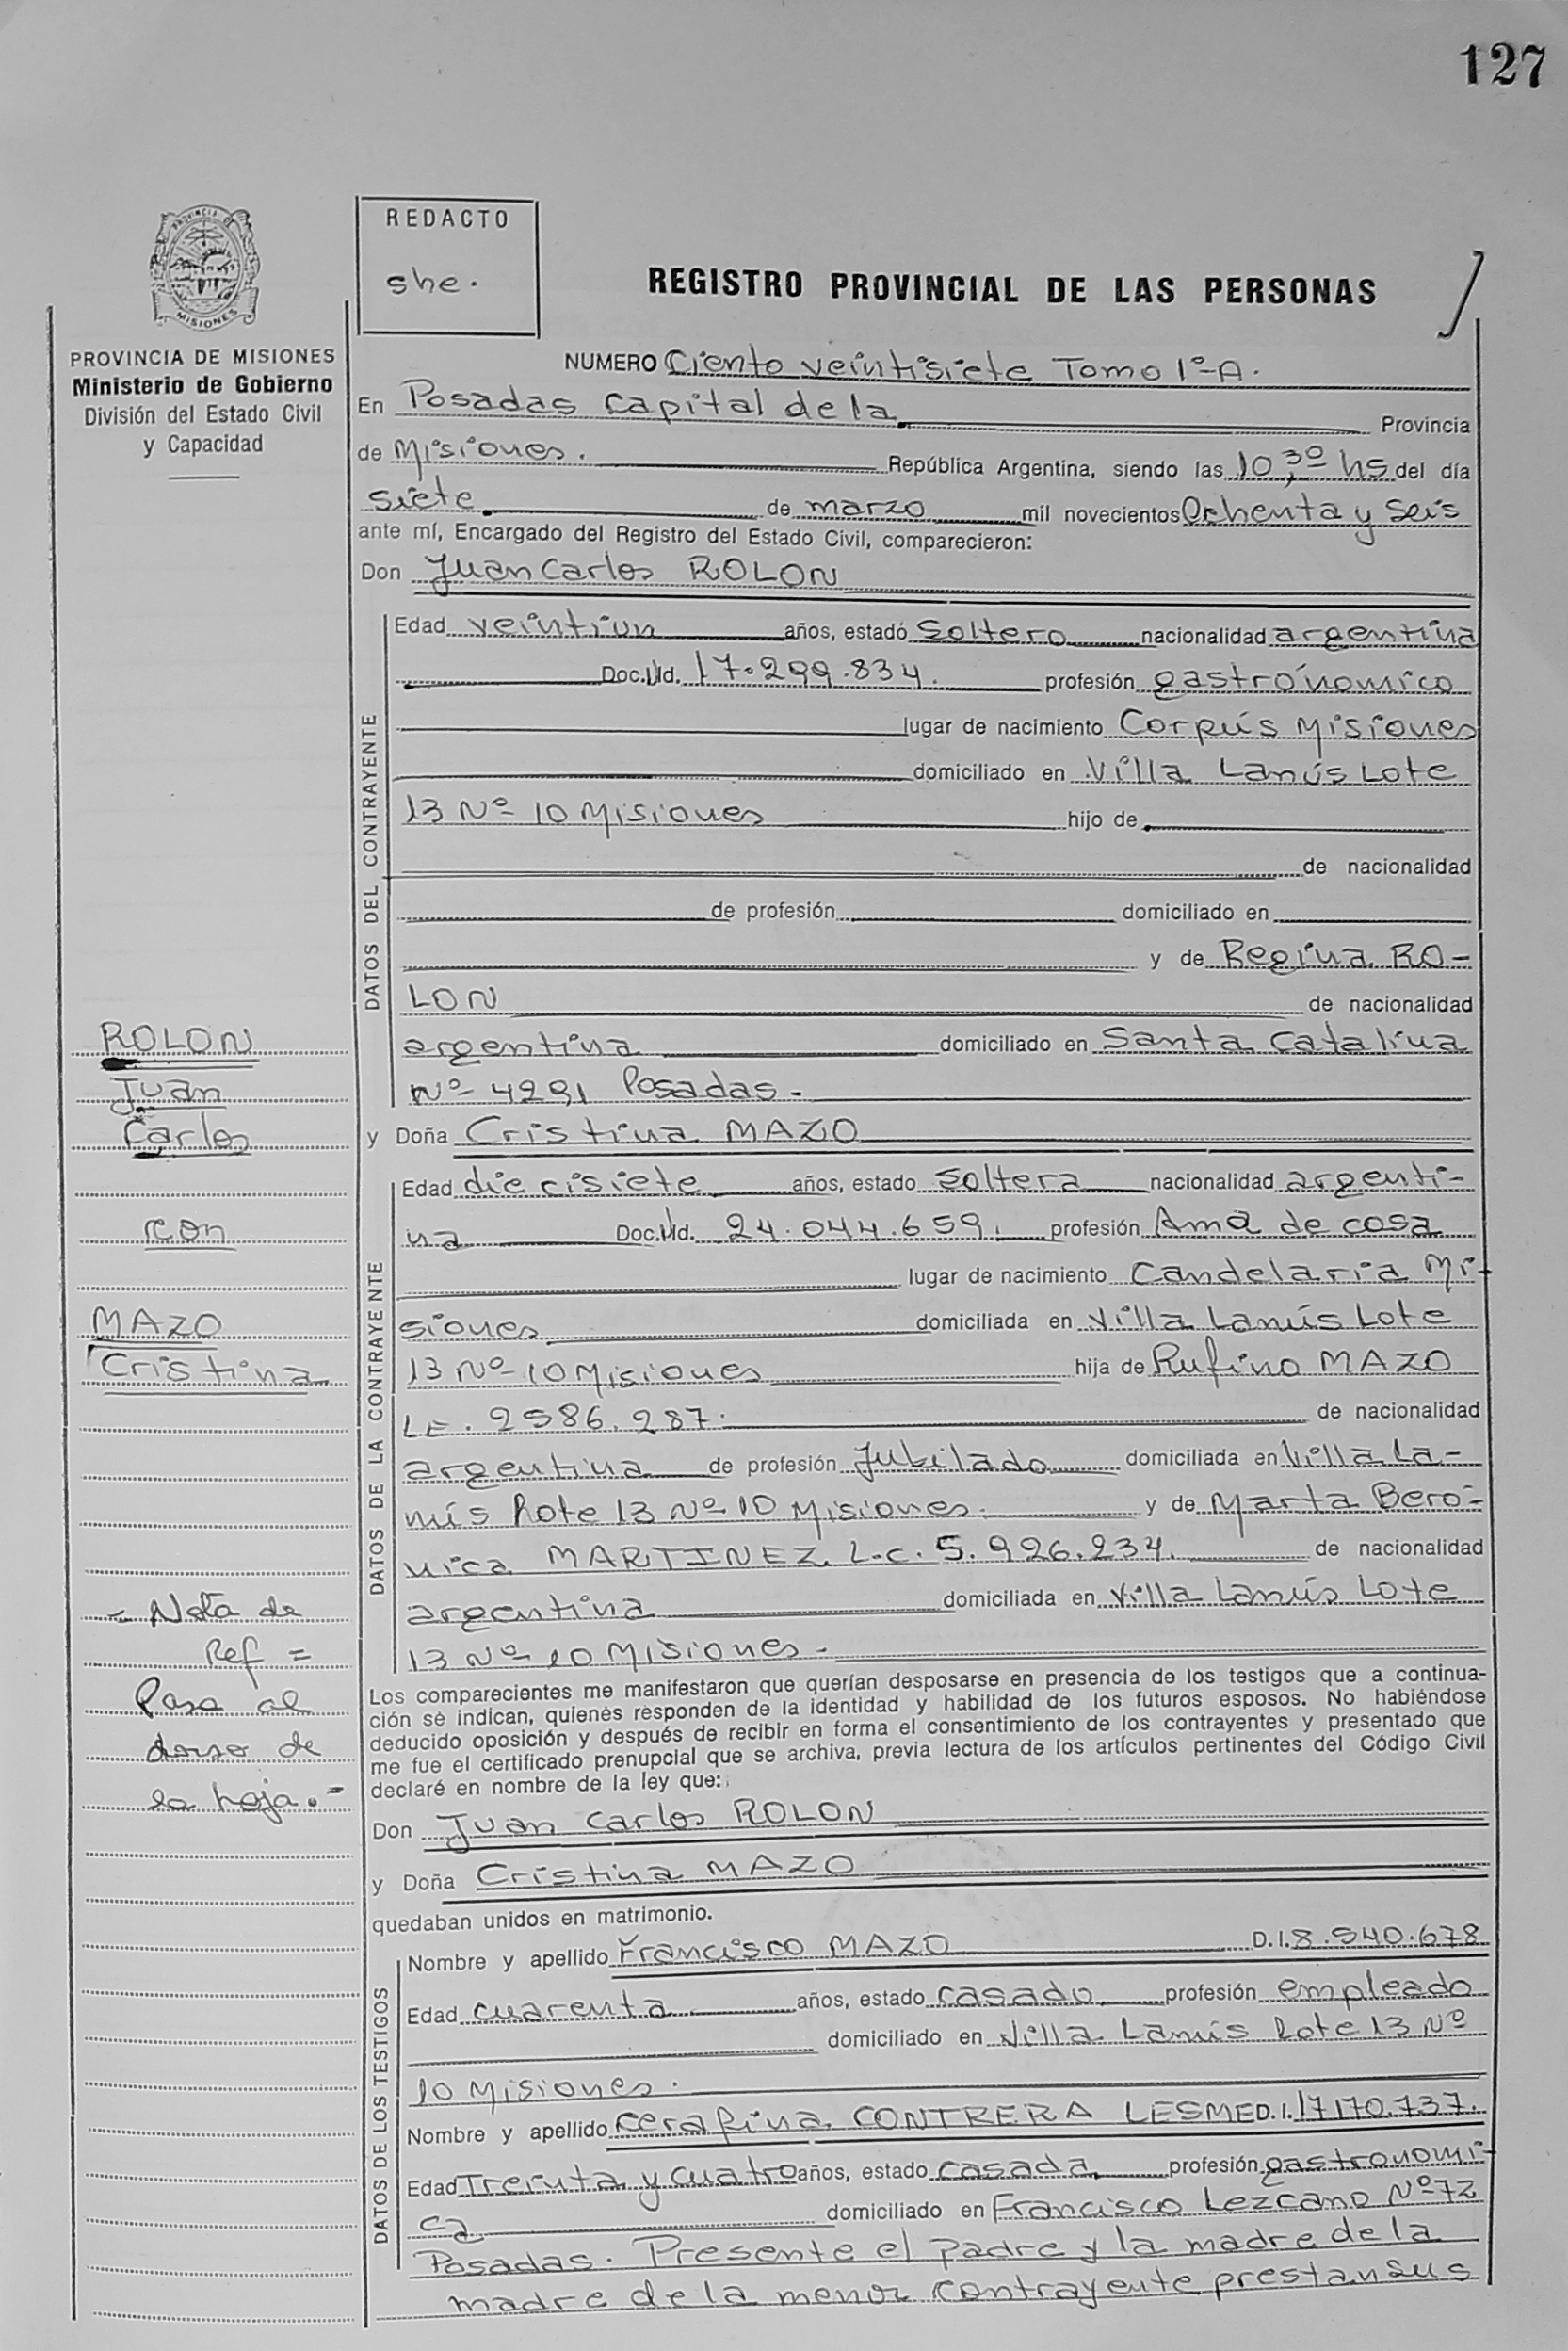 127
PROVINCIA DE
MISIONES
REDACTO
she.
REGISTRO PROVINCIAL DE LAS PERSONAS
PROVINCIA DE MISIONES
Ministerio de Gobierno
División del Estado Civil
y Capacidad
NUMERO Ciento veintisiete Tomo 1º-A.
En Posadas capital de la Provincia
de Misiones. República Argentina, siendo las 10,30 hs del día
siete de marzo mil novecientos Ochenta y Seis
ante mí, Encargado del Registro del Estado Civil, comparecieron:
Don Juan Carlos ROLON
DATOS DEL CONTRAYENTE
Edad veintiun años, estadó Soltero nacionalidad argentina
Doc. Nd. 17.299.834. profesión gastrónomico
lugar de nacimiento Corpús Misiones
domiciliado en Villa Lanús Lote
13 Nº 10 Misiones hijo de
de nacionalidad
de profesión domiciliado en
y de Regina RO-
LON de nacionalidad
argentina domiciliado en Santa Catalina
Nº 4291 Posadas.
y Doña Cristina MAZO
DATOS DE LA CONTRAYENTE
Edad diecisiete años, estado Soltera nacionalidad argenti-
na Doc. Nd. 24.044.659. profesión Ama de casa
lugar de nacimiento Candelaria Mi-
siones domiciliada en Villa Lanús Lote
13 Nº 10 Misiones hija de Rufino MAZO
LE. 2586.287. de nacionalidad
argentina de profesión Jubilado domiciliada en Villa La-
nús Lote 13 Nº 10 Misiones. y de Marta Beró-
nica MARTINEZ L.C. 5.926.234. de nacionalidad
argentina domiciliada en Villa Lanús Lote
13 Nº 10 Misiones.
Los comparecientes me manifestaron que querían desposarse en presencia de los testigos que a continua-
ción se indican, quienes responden de la identidad y habilidad de los futuros esposos. No habiéndose
deducido oposición y después de recibir en forma el consentimiento de los contrayentes y presentado que
me fue el certificado prenupcial que se archiva, previa lectura de los artículos pertinentes del Código Civil
declaré en nombre de la ley que:
Don Juan Carlos ROLON
y Doña Cristina MAZO
quedaban unidos en matrimonio.
DATOS DE LOS TESTIGOS
Nombre y apellido Francisco MAZO D.I. 8.540.678
Edad cuarenta años, estado casado profesión empleado
domiciliado en Villa Lanús Lote 13 Nº
10 Misiones.
Nombre y apellido Cerafina CONTRERA LESME D.I. 17170.737.
Edad Treinta y cuatro años, estado casada profesión gastronomi-
ca domiciliado en Francisco Lezcano Nº 72
Posadas. Presente el padre y la madre de la
madre de la menor contrayente prestan sus
ROLON
Juan
Carlos
con
MAZO
Cristina
- Nota de
Ref =
Pasa al
dorso de
la hoja.=